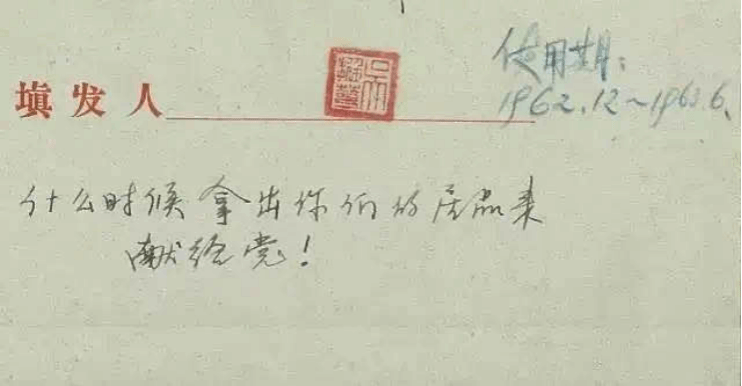 使用期:
1962.12~1963.6.
填发人
什么时候拿出你们的品来
献给党!